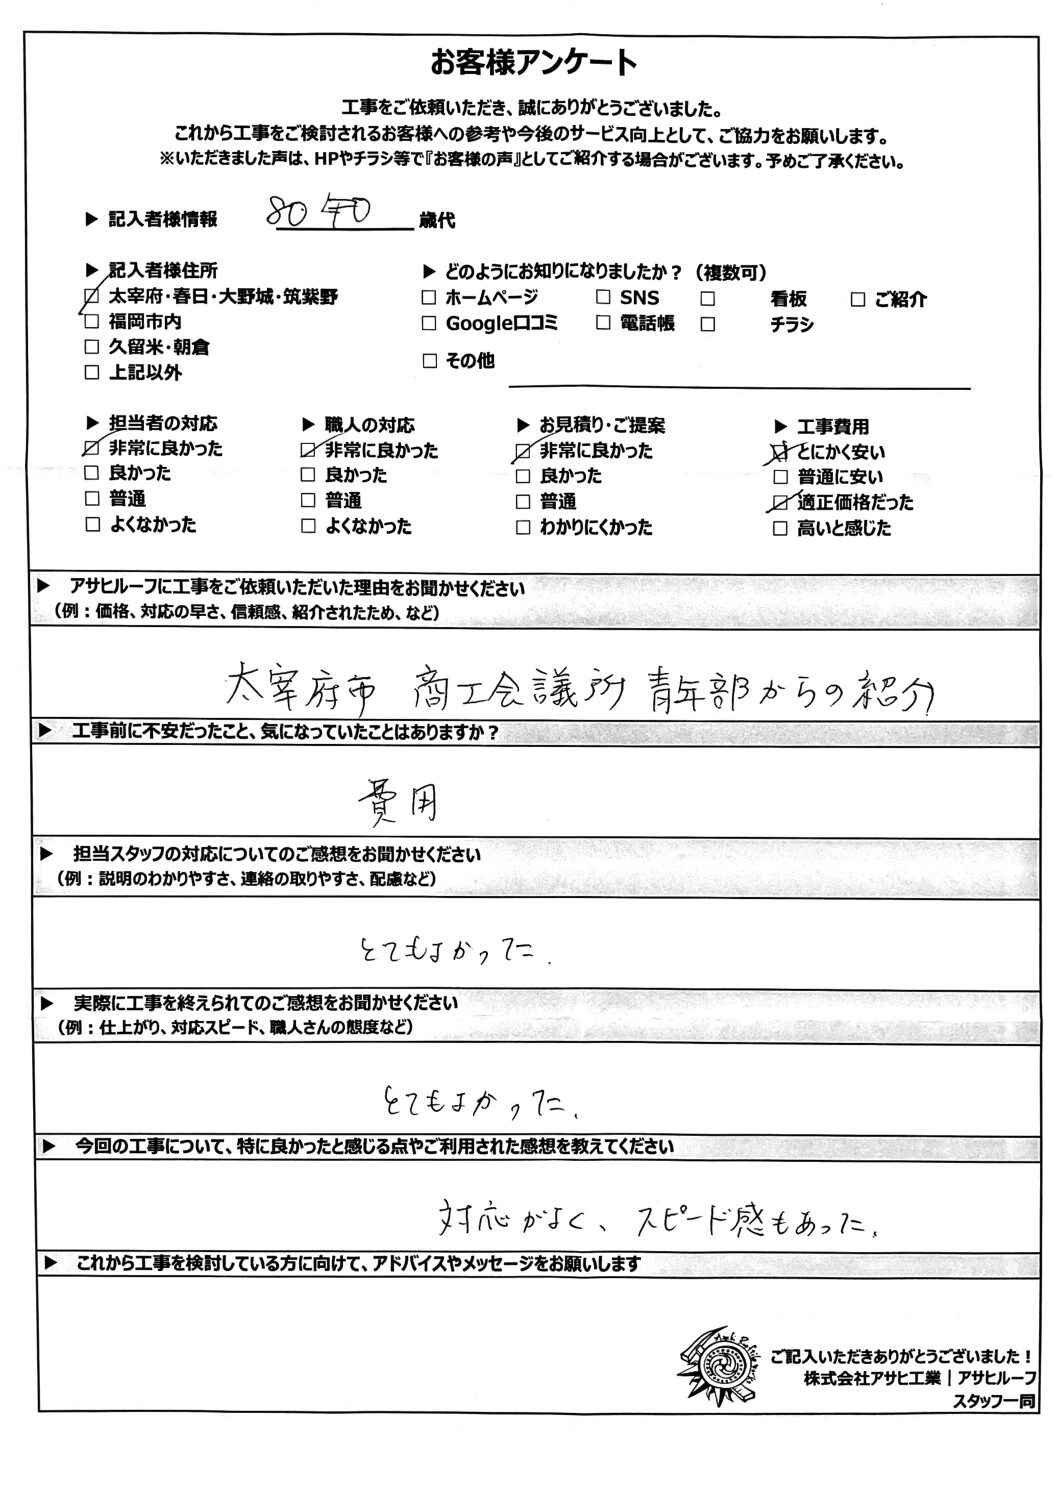 お客様アンケート
工事をご依頼いただき、誠にありがとうございました。
これから工事をご検討されるお客様への参考や今後のサービス向上として、ご協力をお願いします。
※いただきました声は、HPやチラシ等で『お客様の声』としてご紹介する場合がございます。予めご了承ください。
▶ 記入者様情報 80 歳代
▶ 記入者様住所
☑ 太宰府・春日・大野城・筑紫野
□ 福岡市内
□ 久留米・朝倉
□ 上記以外
▶ どのようにお知りになりましたか？（複数可）
□ ホームページ □ SNS □ 看板 □ ご紹介
□ Google口コミ □ 電話帳 □ チラシ
□ その他
▶ 担当者の対応
☑ 非常に良かった
□ 良かった
□ 普通
□ よくなかった
▶ 職人の対応
☑ 非常に良かった
□ 良かった
□ 普通
□ よくなかった
▶ お見積り・ご提案
☑ 非常に良かった
□ 良かった
□ 普通
□ わかりにくかった
▶ 工事費用
☑ とにかく安い
□ 普通に安い
☑ 適正価格だった
□ 高いと感じた
▶ アサヒルーフに工事をご依頼いただいた理由をお聞かせください
（例：価格、対応の早さ、信頼感、紹介されたため、など）
太宰府市 商工会議所 青年部からの紹介
▶ 工事前に不安だったこと、気になっていたことはありますか？
費用
▶ 担当スタッフの対応についてのご感想をお聞かせください
（例：説明のわかりやすさ、連絡の取りやすさ、配慮など）
とてもよかった.
▶ 実際に工事を終えられてのご感想をお聞かせください
（例：仕上がり、対応スピード、職人さんの態度など）
とてもよかった.
▶ 今回の工事について、特に良かったと感じる点やご利用された感想を教えてください
対応がよく、スピード感もあった.
▶ これから工事を検討している方に向けて、アドバイスやメッセージをお願いします
ご記入いただきありがとうございました！
株式会社アサヒ工業｜アサヒルーフ
スタッフ一同